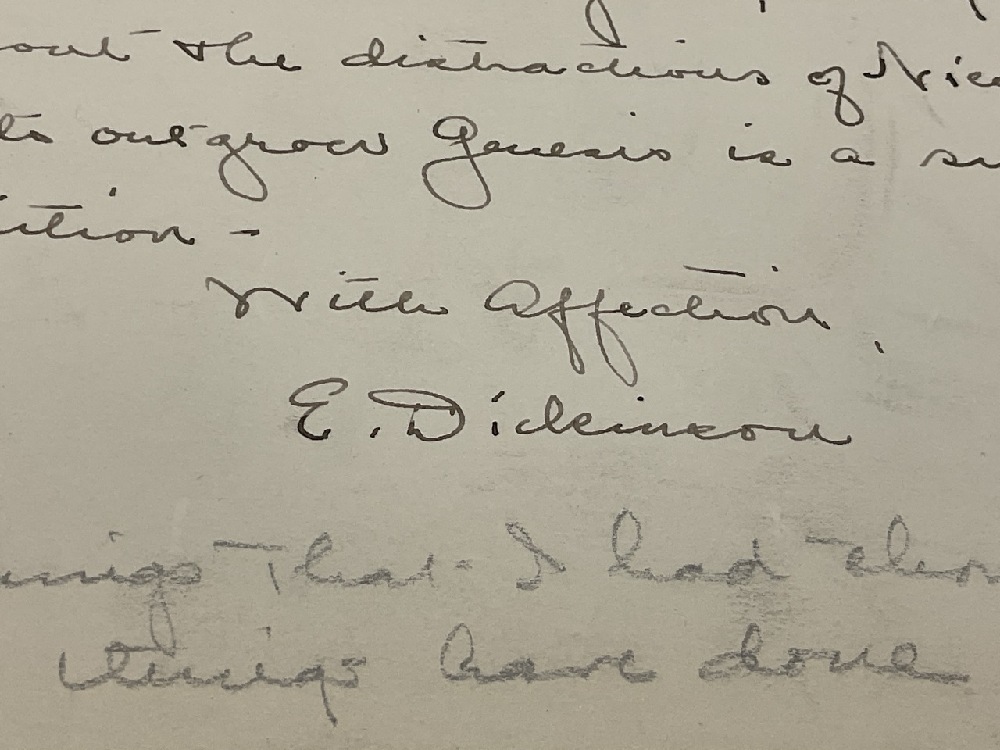 out the distractions of
to outgrow Genesis is a
ition -
With Affection,
E. Dickinson
That I had
things have done